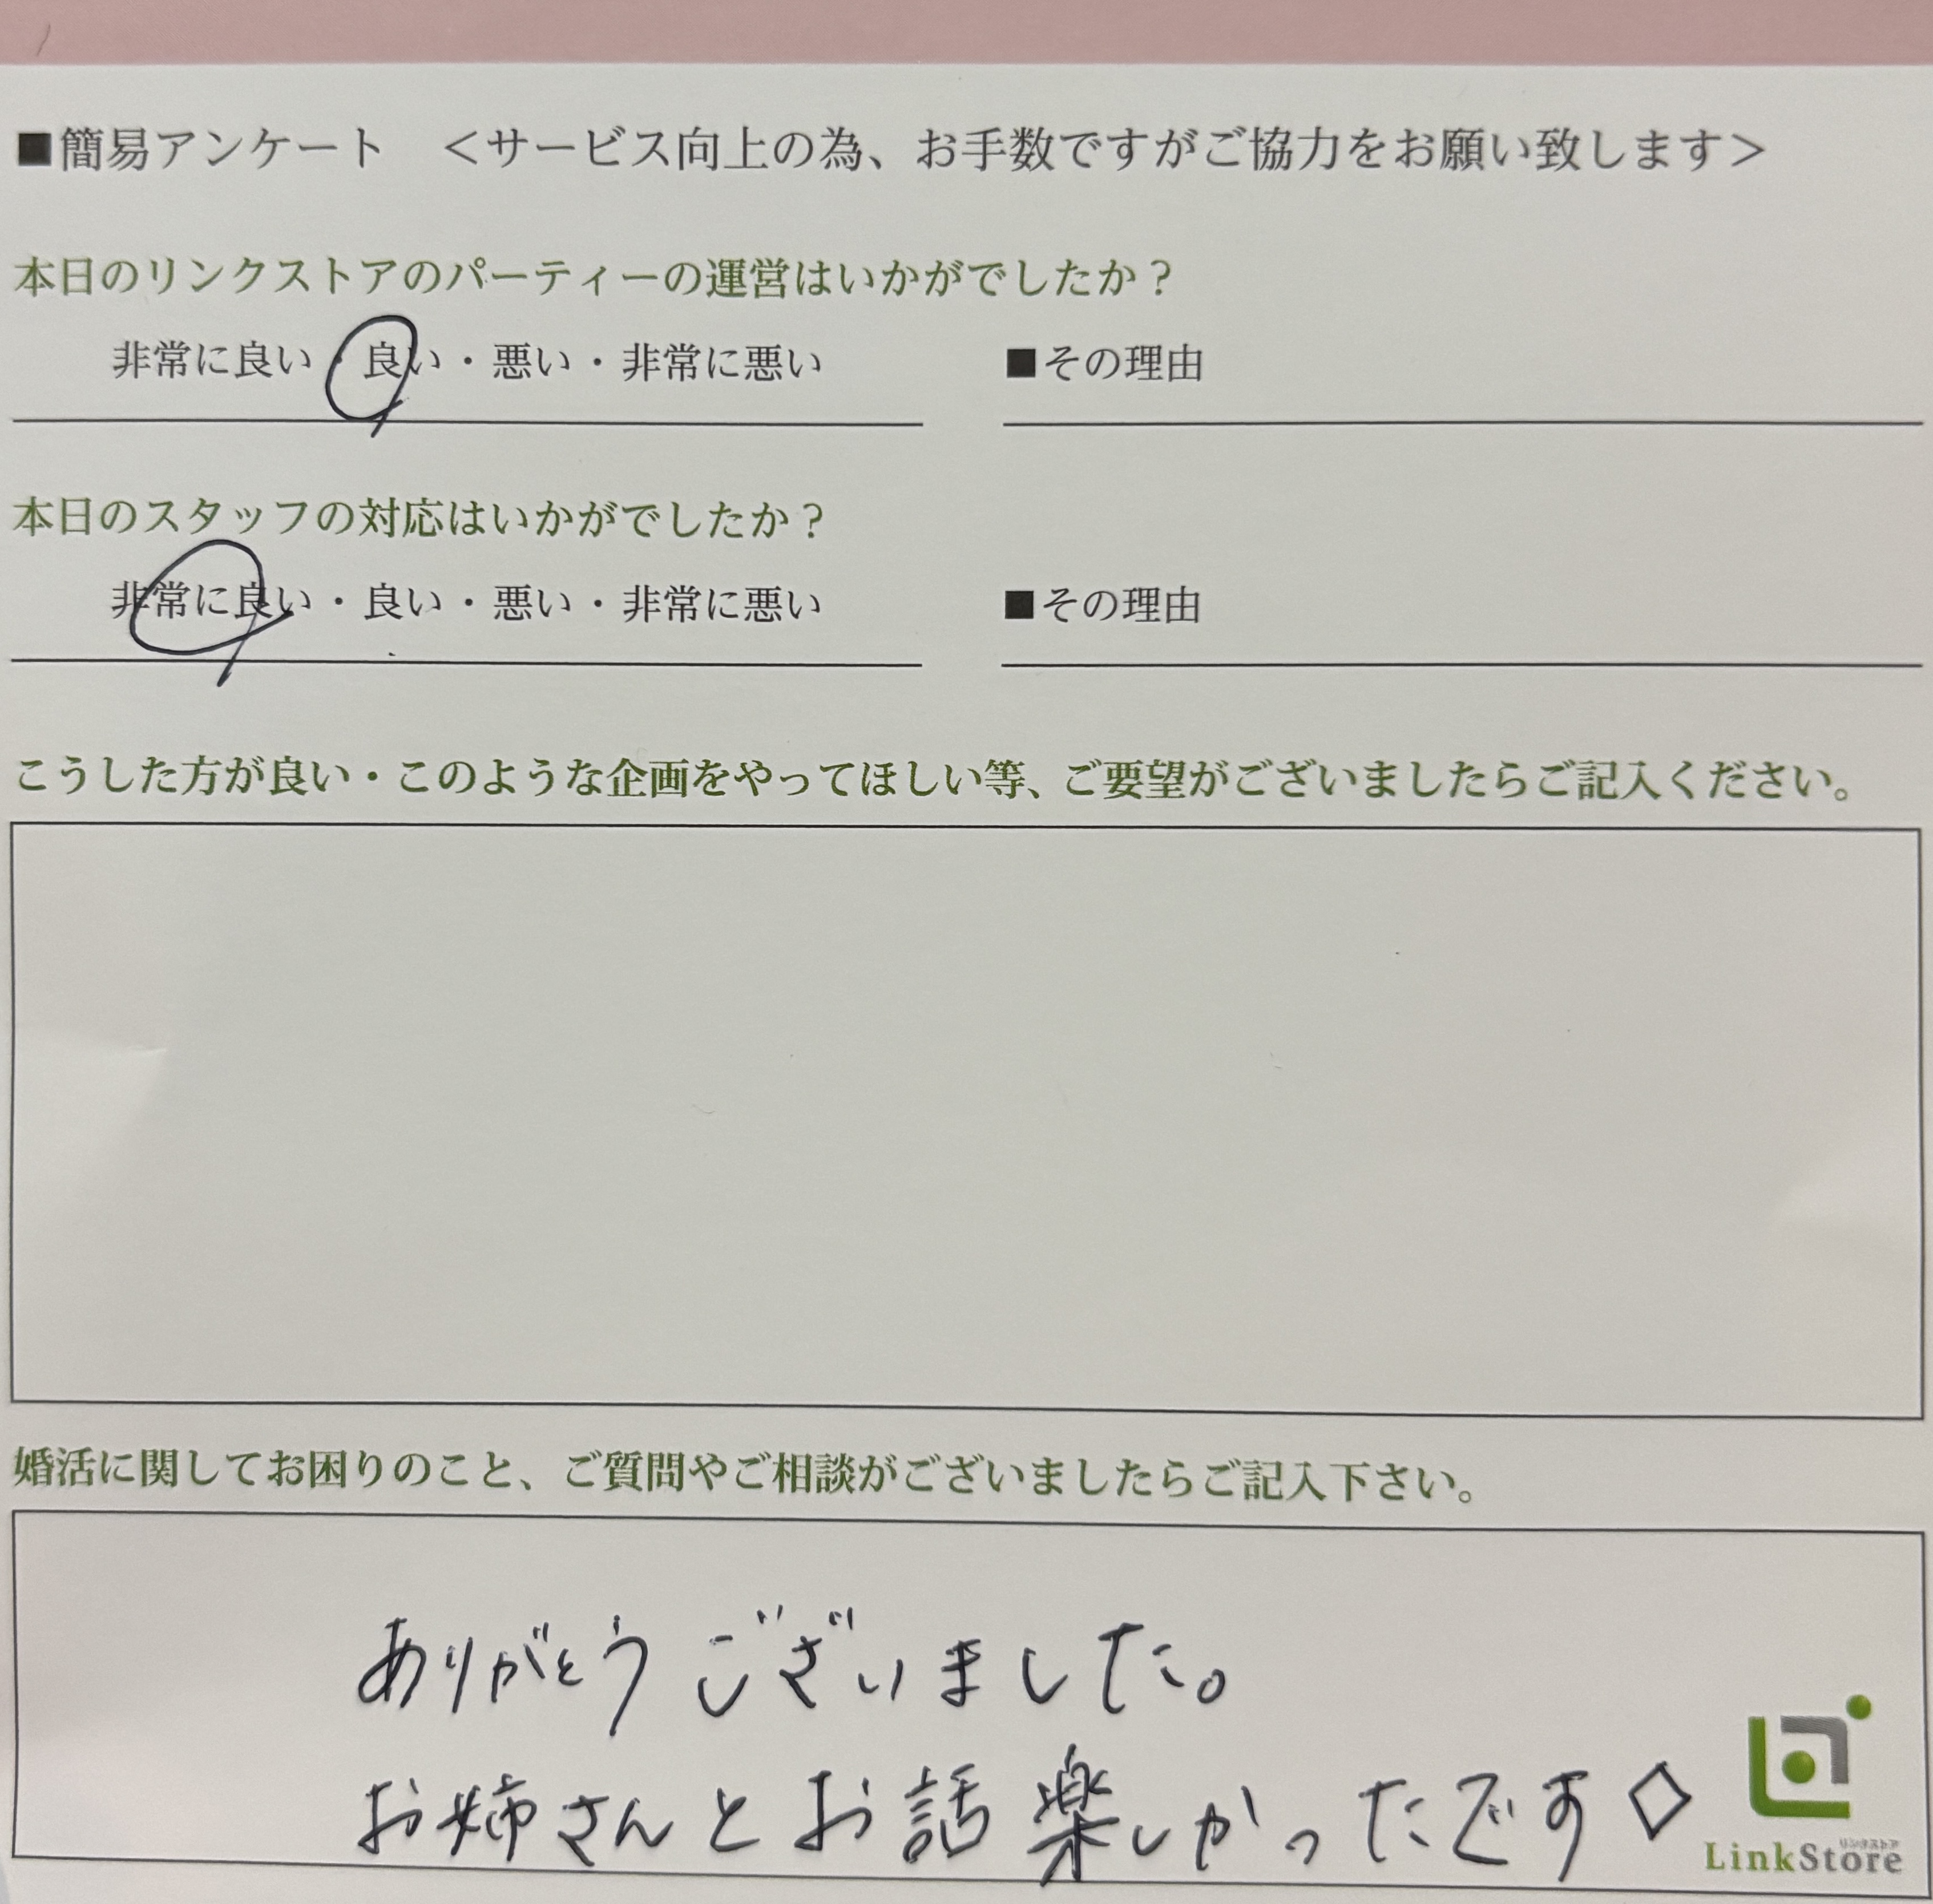 ■簡易アンケート　＜サービス向上の為、お手数ですがご協力をお願い致します＞
本日のリンクストアのパーティーの運営はいかがでしたか？
非常に良い・良い・悪い・非常に悪い　■その理由
本日のスタッフの対応はいかがでしたか？
非常に良い・良い・悪い・非常に悪い　■その理由
こうした方が良い・このような企画をやってほしい等、ご要望がございましたらご記入ください。
婚活に関してお困りのこと、ご質問やご相談がございましたらご記入下さい。
ありがとうございました。
お姉さんとお話楽しかったです◇
リンクストア
LinkStore